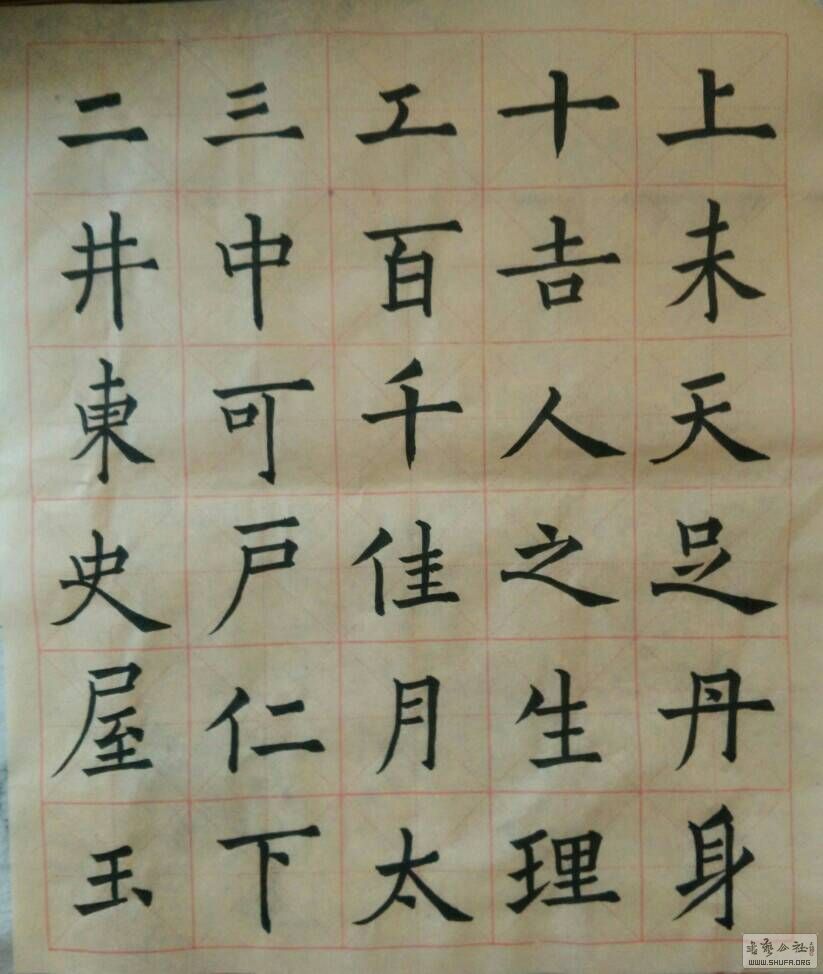 二三工十上
井中百吉未
東可千人天
史戸佳之足
屋仁月生丹
玉下太理身
書藝公社
WWW.SHUFA.ORG